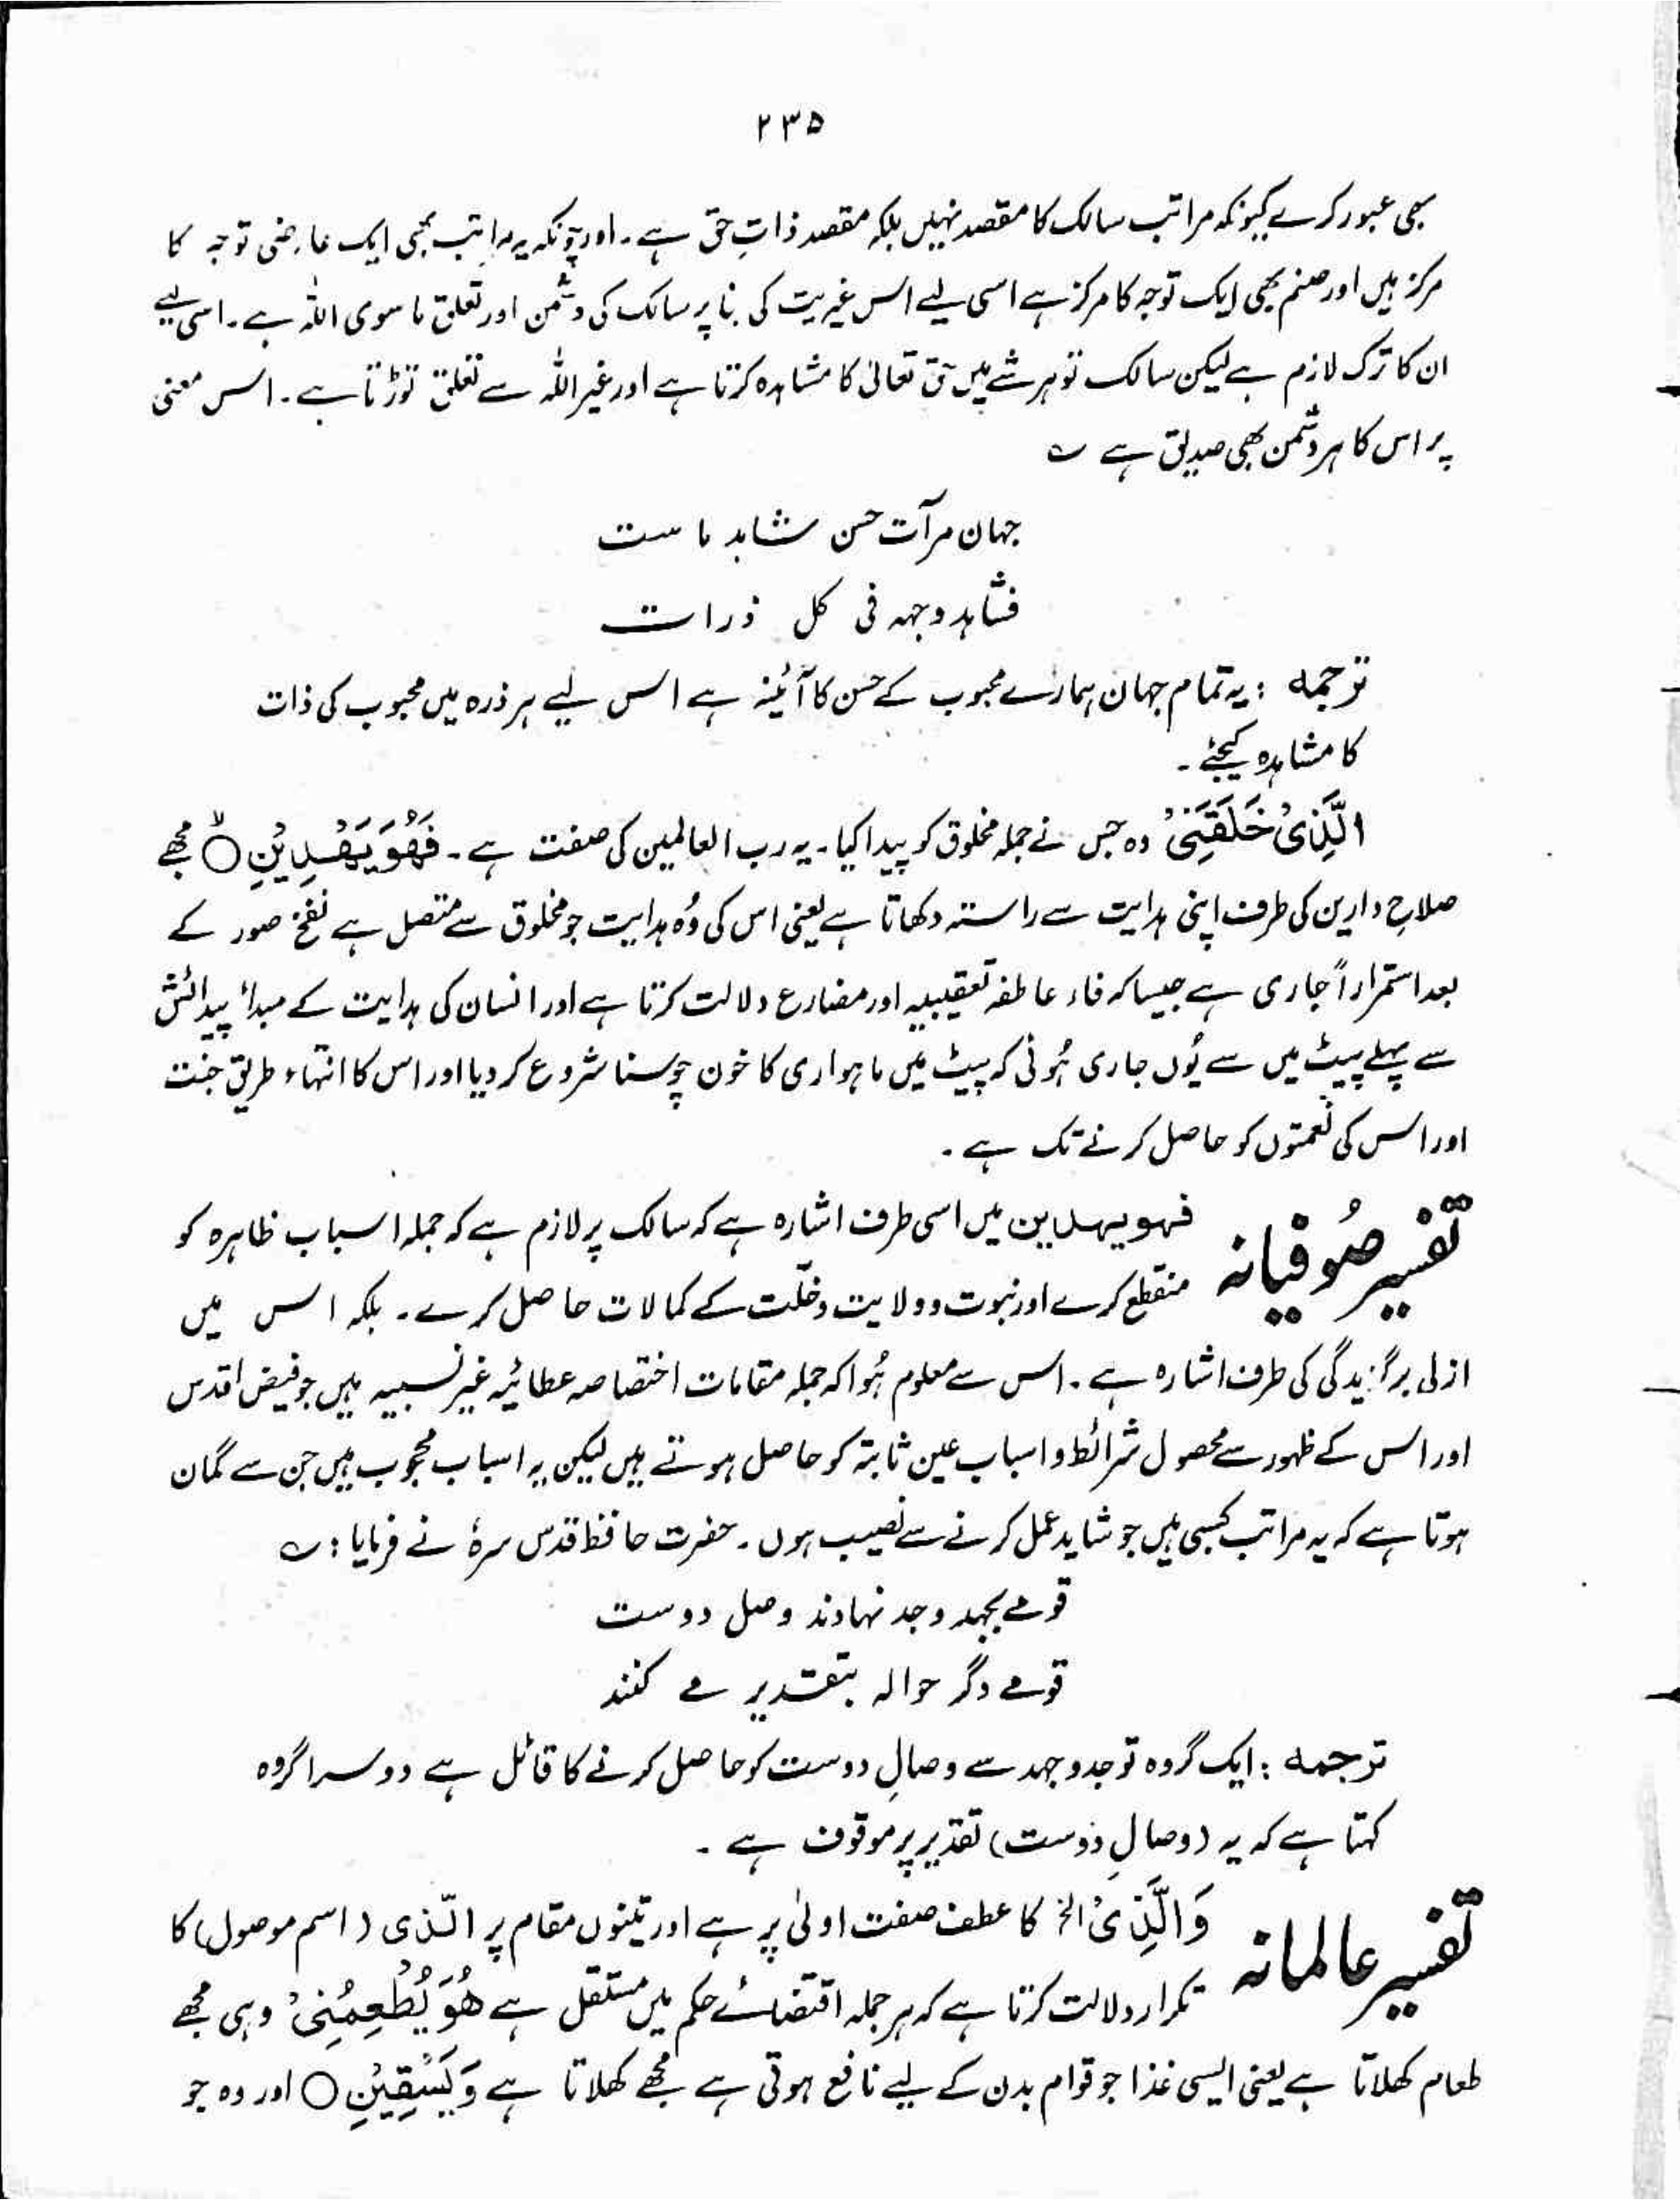 ۲۳۵
بھی عبور کرے کیونکہ مراتب سالک کا مقصد نہیں بلکہ مقصد ذاتِ حق ہے۔ اور چونکہ یہ مراتب بھی ایک عارضی توجہ کا
مرکز ہیں اور صنم بھی ایک توجہ کا مرکز ہے اسی لیے اس غیریت کی بنا پر سالک کی دشمن اور تعلق ماسوی اللہ ہے۔ اسی لیے
ان کا ترک لازم ہے لیکن سالک تو ہر شے میں حق تعالیٰ کا مشاہدہ کرتا ہے اور غیر اللہ سے تعلق توڑتا ہے۔ اس معنی
پر اس کا ہر دشمن بھی صدیق ہے ؎
جہان مرآت حسن شاہد ماست
فشاہد وجہہ فی کل ذرات
ترجمہ : یہ تمام جہان ہمارے محبوب کے حسن کا آئینہ ہے اس لیے ہر ذرہ میں محبوب کی ذات
کا مشاہدہ کیجئے۔
الَّذِیْ خَلَقَنِیْ وہ جس نے جملہ مخلوق کو پیدا کیا۔ یہ رب العالمین کی صفت ہے۔ فَهُوَ یَهْدِیْنِ ○ مجھے
صلاحِ دارین کی طرف اپنی ہدایت سے راستہ دکھاتا ہے یعنی اس کی وُہ ہدایت جو مخلوق سے متصل ہے نفخ صور کے
بعد استمراراً جاری ہے جیسا کہ فاء عاطفہ تعقیبیہ اور مضارع دلالت کرتا ہے اور انسان کی ہدایت کے مبداُ پیدائش
سے پہلے پیٹ میں سے یُوں جاری ہُوئی کہ پیٹ میں ماہواری کا خون چوسنا شروع کر دیا اور اس کا انتہاء طریق جنت
اور اس کی نعمتوں کو حاصل کرنے تک ہے۔
تفسیر صُوفیانہ فہو یہدین میں اسی طرف اشارہ ہے کہ سالک پر لازم ہے کہ جملہ اسباب ظاہرہ کو
منقطع کرے اور نبوت و ولایت و خلّت کے کمالات حاصل کرے۔ بلکہ اس میں
ازلی برگزیدگی کی طرف اشارہ ہے۔ اس سے معلوم ہُوا کہ جملہ مقامات اختصاصہ عطائیہ غیر کسبیہ ہیں جو فیض اقدس
اور اس کے ظہور سے محصول شرائط و اسباب عین ثابتہ کو حاصل ہوتے ہیں لیکن یہ اسباب محجوب ہیں جن سے گمان
ہوتا ہے کہ یہ مراتب کسبی ہیں جو شاید عمل کرنے سے نصیب ہوں۔ حضرت حافظ قدس سرہٗ نے فرمایا : ؎
قومے بجہد و جد نہادند وصل دوست
قومے دگر حوالہ بتقدیر مے کنند
ترجمہ : ایک گروہ تو جدوجہد سے وصالِ دوست کو حاصل کرنے کا قائل ہے دوسرا گروہ
کہتا ہے کہ یہ (وصالِ دوست) تقدیر پر موقوف ہے۔
تفسیر عالمانہ وَالَّذِیْ الخ کا عطف صفت اولیٰ پر ہے اور تینوں مقام پر الّذی (اسم موصول) کا
تکرار دلالت کرتا ہے کہ ہر جملہ اقتضائے حکم میں مستقل ہے هُوَ یُطْعِمُنِیْ وہی مجھے
طعام کھلاتا ہے یعنی ایسی غذا جو قوام بدن کے لیے نافع ہوتی ہے مجھے کھلاتا ہے وَیَسْقِیْنِ ○ اور وہ جو